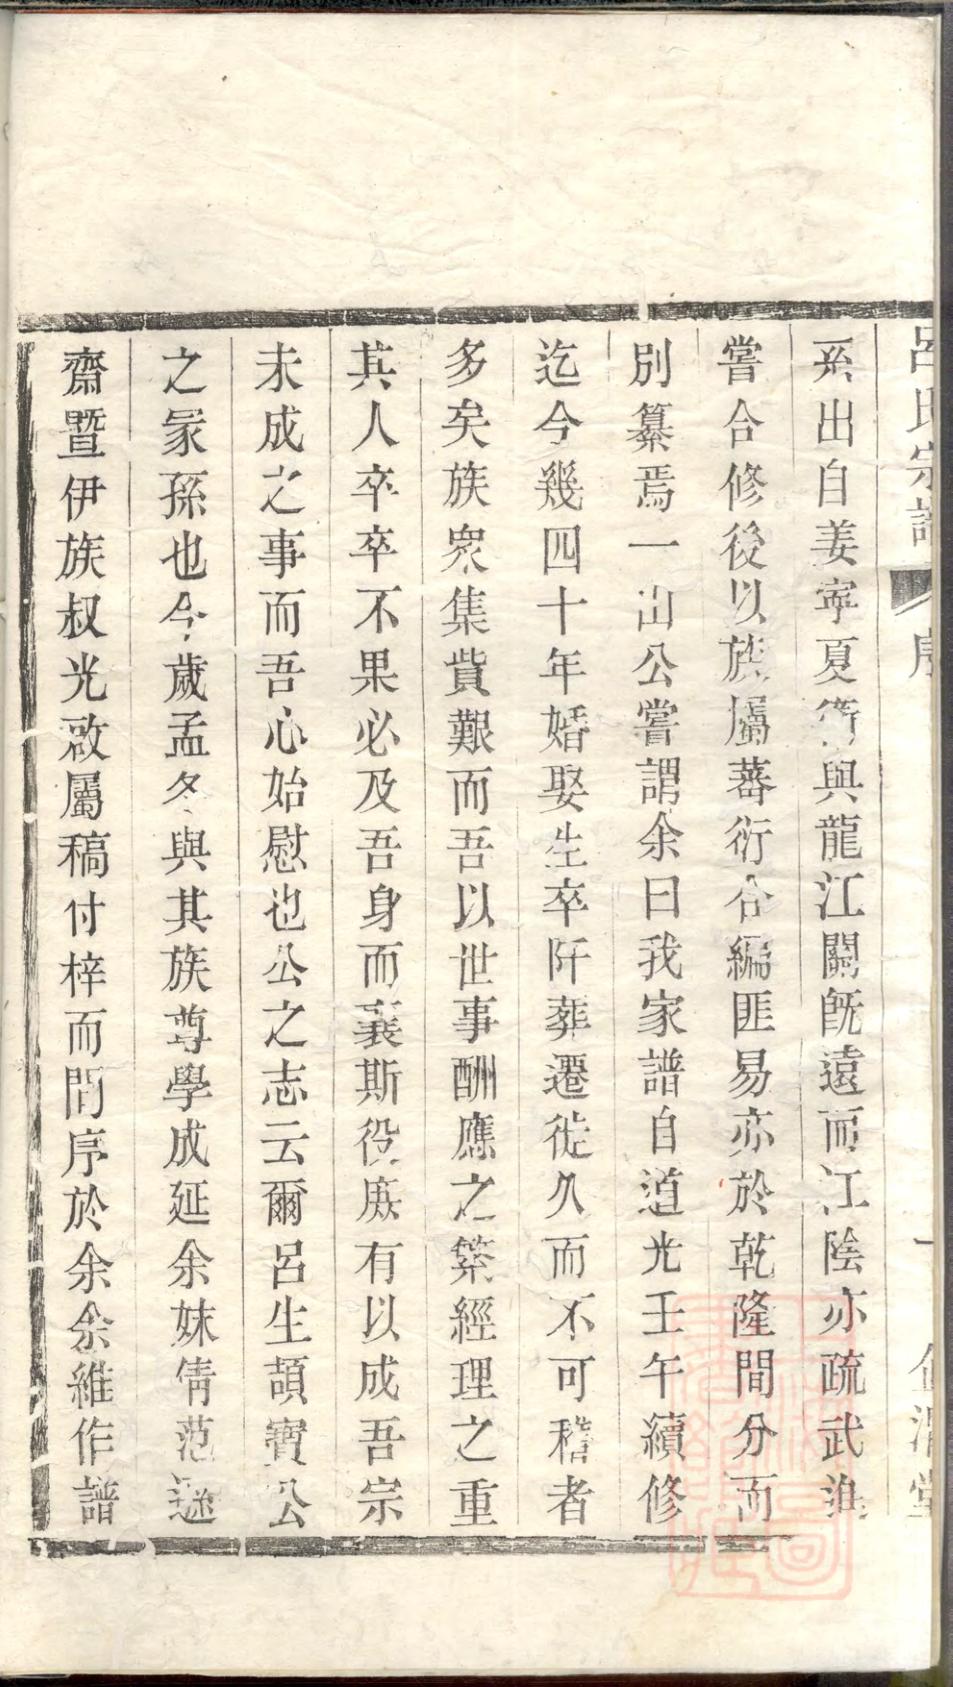 呂氏宗譜 序 一
系出自姜寧夏衛與龍江關旣遠而江陰亦疏武進
嘗合修後以族屬蕃衍合編匪易亦於乾隆間分而
別纂焉一山公嘗謂余曰我家譜自道光壬午續修
迄今幾四十年婚娶生卒阡葬遷徙久而不可稽者
多矣族衆集貲艱而吾以世事酬應之繁經理之重
其人卒卒不果必及吾身而襄斯役庶有以成吾宗
未成之事而吾心始慰也公之志云爾呂生頡寶公
之冢孫也今歲孟冬與其族尊學成延余妹倩范遜
齋暨伊族叔光啟屬稿付梓而問序於余余維作譜